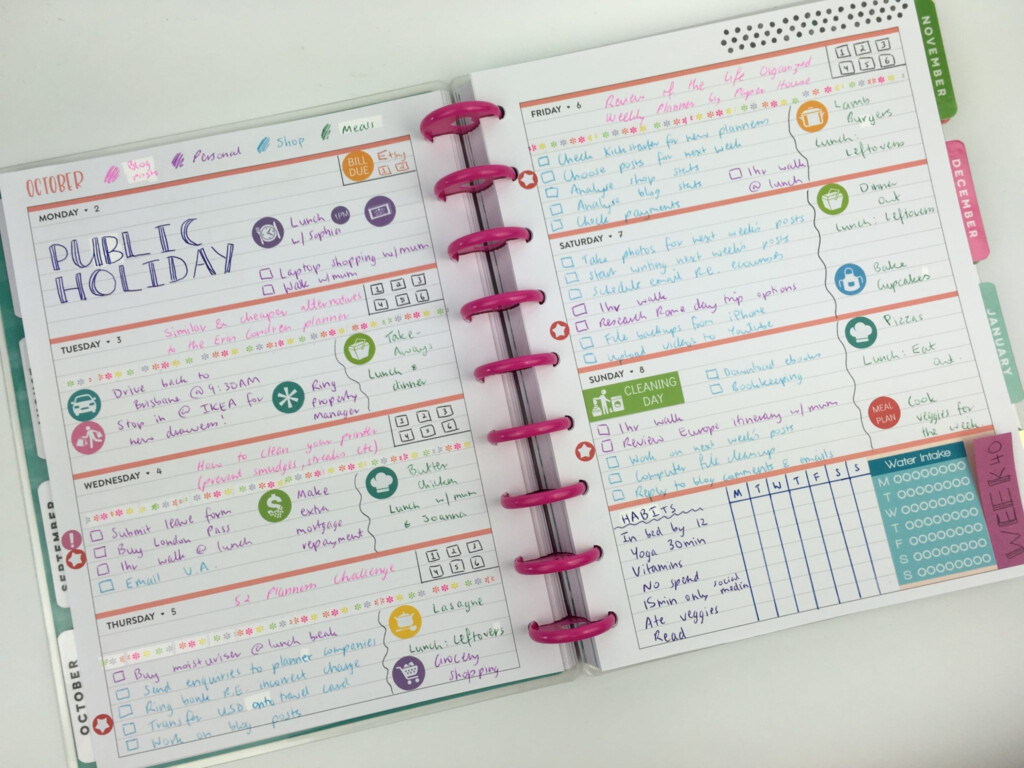 OCTOBER
Blog posts
Personal
Shop
Meals
MONDAY • 2
BILL DUE
Etsy
1 2
PUBLIC
HOLIDAY
Lunch
w/ Sophia
1PM
Laptop shopping w/ mum
Walk w/ mum
Similar & cheaper alternatives
to the Erin Condren planner
1 2 3
4 5 6
TUESDAY • 3
Drive back to
Brisbane @ 9:30AM
Stop in @ IKEA for
new drawers!
Ring
Property
Manager
Take-
Aways
Lunch &
dinner
How to clean your printer
(prevent smudges, streaks etc)
1 2 3
4 5 6
WEDNESDAY • 4
Submit leave form
Buy London Pass
1hr walk @ lunch
Email V.A.
Make
extra
mortgage
repayment
Butter
chicken
Lunch w/ mum
& Joanna
52 Planners Challenge
1 2 3
4 5 6
THURSDAY • 5
Buy moisturiser @ lunch beak
Send enquiries to planner companies
Ring bank R.E incorrect charge
Transfer USD onto travel card
Work on blog posts
Lasagne
Lunch: Leftovers
Grocery
shopping
SEPTEMBER
OCTOBER
FRIDAY • 6
Review of the Life Organized
Weekly Planner by Paper House
1 2 3
4 5 6
Check Kickstarter for new planners
Choose posts for next week
Analyse shop stats
Analyse blog stats
Check payments
1hr walk
@ lunch
Lamb
Burgers
Lunch:
Leftovers
SATURDAY • 7
Take photos for next week's posts
Start writing next week's posts
Schedule email R.E. ecourses
1hr walk
Research Rome day trip options
File backups from iPhone
Upload videos to Youtube
Dinner
out
Lunch: Leftovers
Bake
Cupcakes
SUNDAY • 8
CLEANING
DAY
Download ebooks
Bookkeeping
1hr walk
Review Europe itinerary w/ mum
Work on next week's posts
Computer file cleanup
Reply to blog comments & emails
Pizzas
Lunch: Eat
out.
MEAL PLAN
Cook
veggies for
the week
HABITS
M T W T F S S
In bed by 12
Yoga 30min
Vitamins
No spend
15min only social media
Ate veggies
Read
Water Intake
M
T
W
T
F
S
S
WEEK40
NOVEMBER
DECEMBER
JANUARY